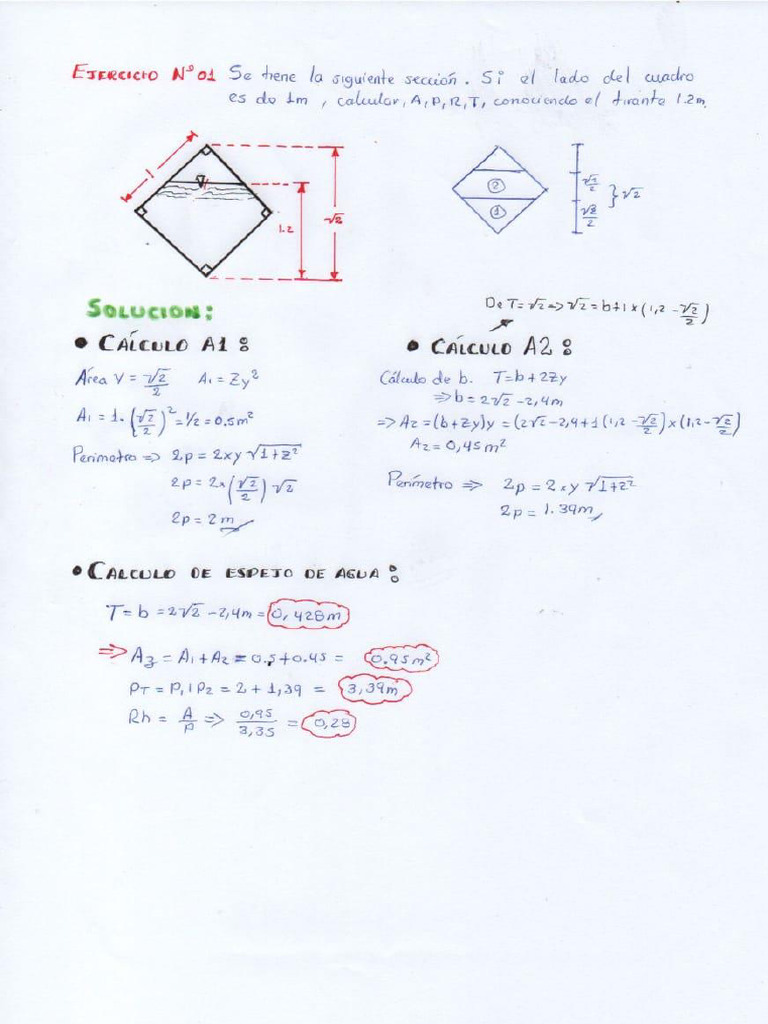 EJERCICIO N°01 Se tiene la siguiente sección. Si el lado del cuadro
es de 1m, calcular, A, P, R, T, conociendo el tirante 1.2m.
1
1.2
√2
②
①
√2/2
√2/2
√2
SOLUCION:
De T=√2 => √2 = b+1x(1,2 - √2/2)
• CÁLCULO A1:
Área V = √2/2 A1 = Zy²
A1 = 1.(√2/2)² = 1/2 = 0.5m²
Perimetro => 2p = 2xy √1+z²
2p = 2x(√2/2)√2
2p = 2m
• CÁLCULO A2:
Cálculo de b. T=b+2Zy
=> b = 2√2 - 2,4m
=> A2 = (b+Zy)y = (2√2-2,4+1(1,2-√2/2)x(1,2-√2/2)
A2 = 0,45m²
Perímetro => 2p = 2xy √1+z²
2p = 1.39m
• CALCULO DE ESPEJO DE AGUA:
T = b = 2√2 - 2,4m = 0,428m
=> A3 = A1+A2 = 0.5+0.45 = 0.95m²
PT = P1 P2 = 2 + 1,39 = 3,39m
Rh = A/P => 0,95/3,35 = 0,28